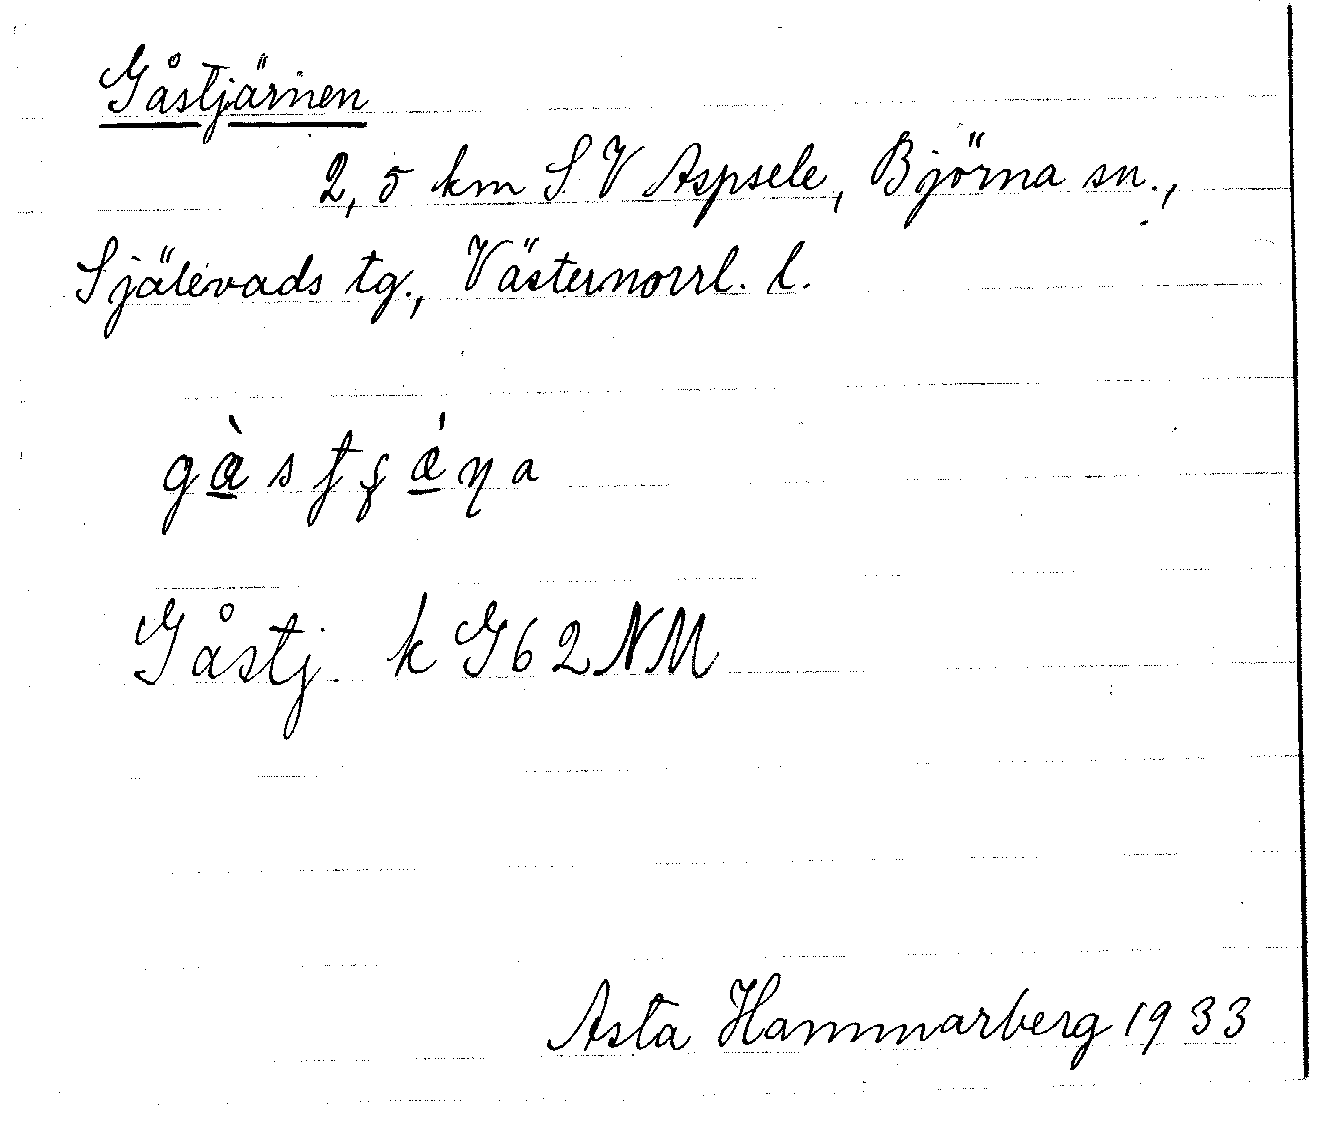 Gåstjärnen
2,5 km S.V Aspsele, Björna sn.,
Själevads tg., Västernorrl. l.
Gåstj. k G62NM
Asta Hammarberg 1933